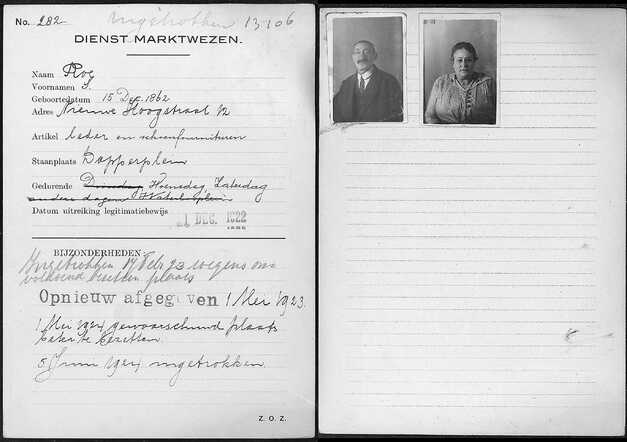 No. 282 ingetrokken 13106
DIENST MARKTWEZEN.
Naam Roe
Voornamen S.
Geboortedatum 15 Dec. 1862
Adres Nieuwe Hoogstraat 12
Artikel leder en schoenfournituren
Staanplaats Dapperplein
Gedurende Dinsdag, Woensdag, Zaterdag
andere dagen Waterlooplein
Datum uitreiking legitimatiebewijs
1 DEC. 1922
BIJZONDERHEDEN:
Ingetrokken 17 Febr 23 wegens on-
voldoend bezetten plaats
Opnieuw afgegeven 1 Mei 1923.
1 Mei 1924 gewaarschuwd plaats
beter te bezetten.
5 Juni 1924 ingetrokken.
Z. O. Z.